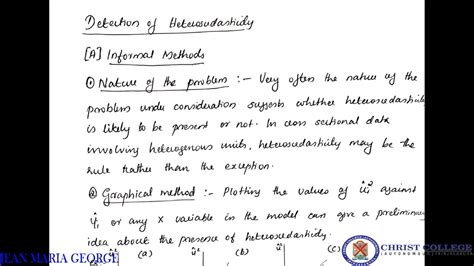 Detection of Heteroscedasticity
[A] Informal Methods
① Nature of the problem :- Very often the nature of the
problem under consideration suggests whether heteroscedasticity
is likely to be present or not. In cross sectional data
involving heterogenous units, heteroscedasticity may be the
rule rather than the exception.
② Graphical method :- Plotting the values of ûᵢ² against
Ŷᵢ or any X variable in the model can give a preliminary
idea about the presence of heteroscedasticity.
(a) (b) (c) (d)
JEAN MARIA GEORGE
CHRIST COLLEGE
(AUTONOMOUS)